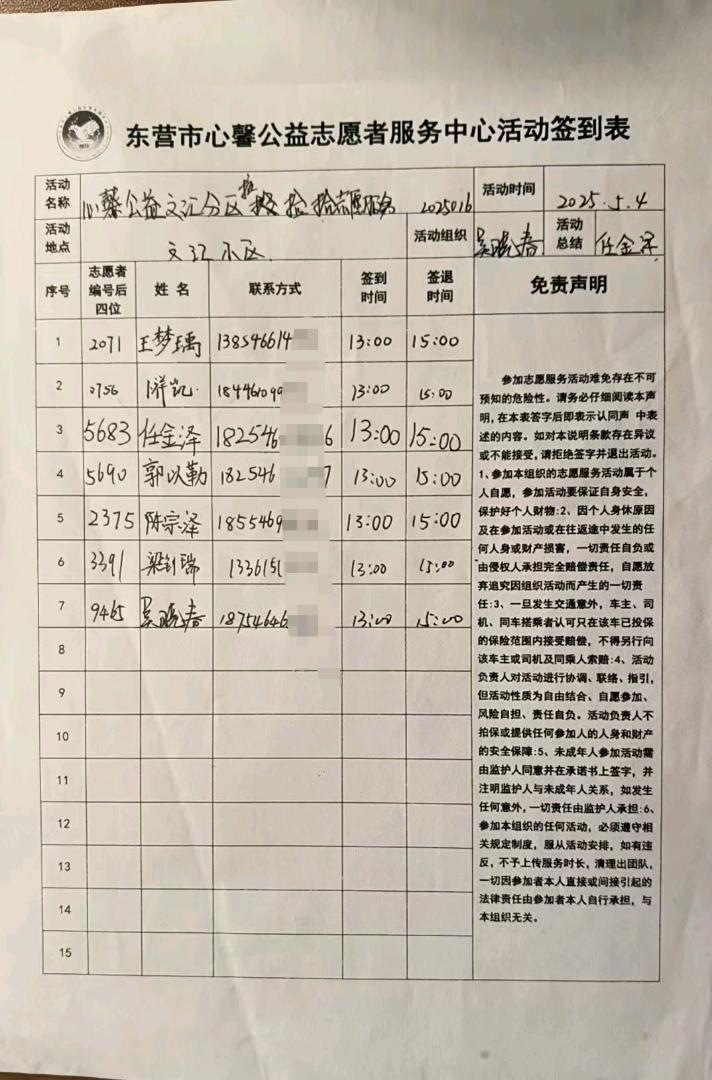 东营市心馨公益志愿者服务中心活动签到表
活动名称 心馨公益文汇分区 捡拾志愿服务 2025016 活动时间 2025.5.4
活动地点 文汇小区 活动组织 吴晓春 活动总结 任金泽
序号 志愿者编号后四位 姓名 联系方式 签到时间 签退时间 免责声明
1 2071 王梦瑀 138546614 13:00 15:00
2 0756 凯 18446109 13:00 15:00
3 5683 任金泽 182546 6 13:00 15:00
4 5690 郭以勤 182546 7 13:00 15:00
5 2375 陈宗泽 1855469 13:00 15:00
6 3391 梁 瑞 133615 13:00 15:00
7 9465 吴晓春 18754646 13:00 15:00
8
9
10
11
12
13
14
15
参加志愿服务活动难免存在不可
预知的危险性。请务必仔细阅读本声
明,在本表签字后即表示认同声 中表
述的内容。如对本说明条款存在异议
或不能接受,请拒绝签字并退出活动。
1、参加本组织的志愿服务活动属于个
人自愿,参加活动要保证自身安全,
保护好个人财物:2、因个人身休原因
及在参加活动或在往返途中发生的任
何人身或财产损害,一切责任自负或
由侵权人承担完全赔偿责任,自愿放
弃追究因组织活动而产生的一切责
任:3、一旦发生交通意外,车主、司
机、同车搭乘者认可只在该车已投保
的保险范围内接受赔偿,不得另行向
该车主或司机及同乘人索赔:4、活动
负责人对活动进行协调、联络、指引,
但活动性质为自由结合、自愿参加、
风险自担、责任自负。活动负责人不
拍保或提供任何参加人的人身和财产
的安全保障:5、未成年人参加活动需
由监护人同意并在承诺书上签字,并
注明监护人与未成年人关系,如发生
任何意外,一切责任由监护人承担:6、
参加本组织的任何活动,必须遵守相
关规定制度,服从活动安排,如有违
反,不予上传服务时长,清理出团队,
一切因参加者本人直接或间接引起的
法律责任由参加者本人自行承担,与
本组织无关。